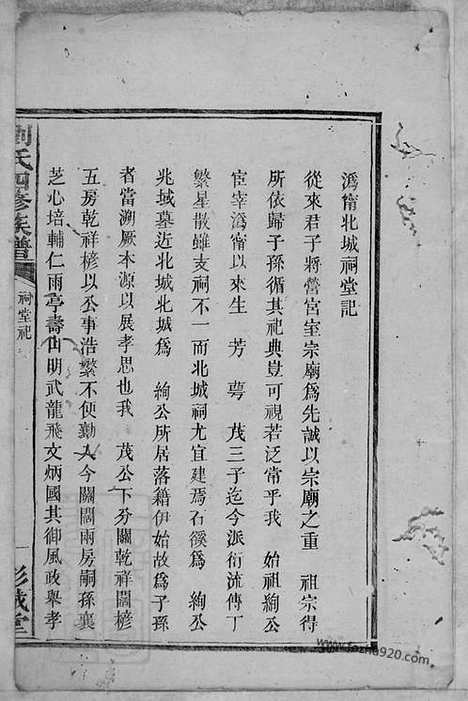 溈甯北城祠堂記
從來君子將營宮室宗廟爲先誠以宗廟之重　祖宗得
所依歸子孫循其祀典豈可視若泛常乎我　始祖絢公
宦宰溈甯以來生　芳　萼　茂三子迄今派衍流傳丁
繁星散雖支祠不一而北城祠尤宜建焉石徯爲　絢公
兆域墓近北城北城爲　絢公所居落籍伊始故爲子孫
者當溯厥本源以展孝思也我　茂公下分闗乾祥闗楗
五房乾祥楗以公事浩繁不便勤人今闗闗兩房嗣孫襄
芝心培輔仁雨亭壽山明武龍飛文炳國其御風政舉孝
劉氏四修族譜
祠堂記
一
彭城堂
www.fozhu920.com